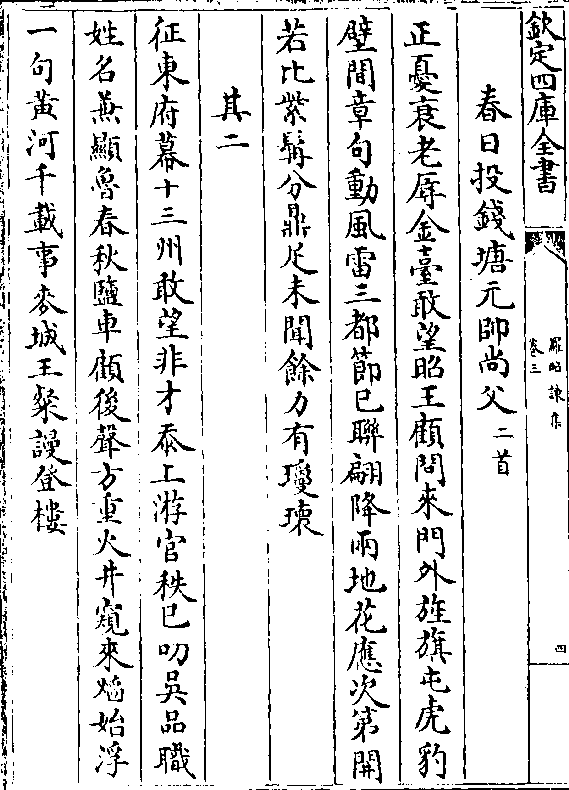 欽定四庫全書
羅昭諫集
卷三
四
春日投錢塘元帥尚父二首
正憂衰老辱金臺敢望昭王顧問來門外旌旗屯虎豹
壁間章句動風雷三都節已聯翩降兩地花應次第開
若比紫髯分鼎足未聞餘力有瓊瓌
其二
征東府幕十三州敢望非才忝上游官秩已叨吳品職
姓名兼顯魯春秋鹽車顧後聲方重火井窺來燄始浮
一句黄河千載事麥城王粲謾登樓